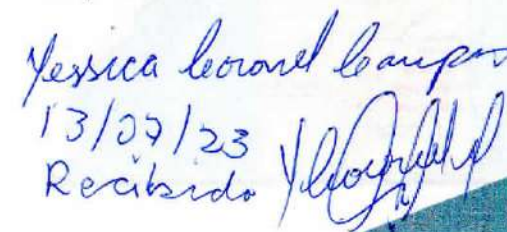 Yessica Coronel Campos
13/07/23
Recibido